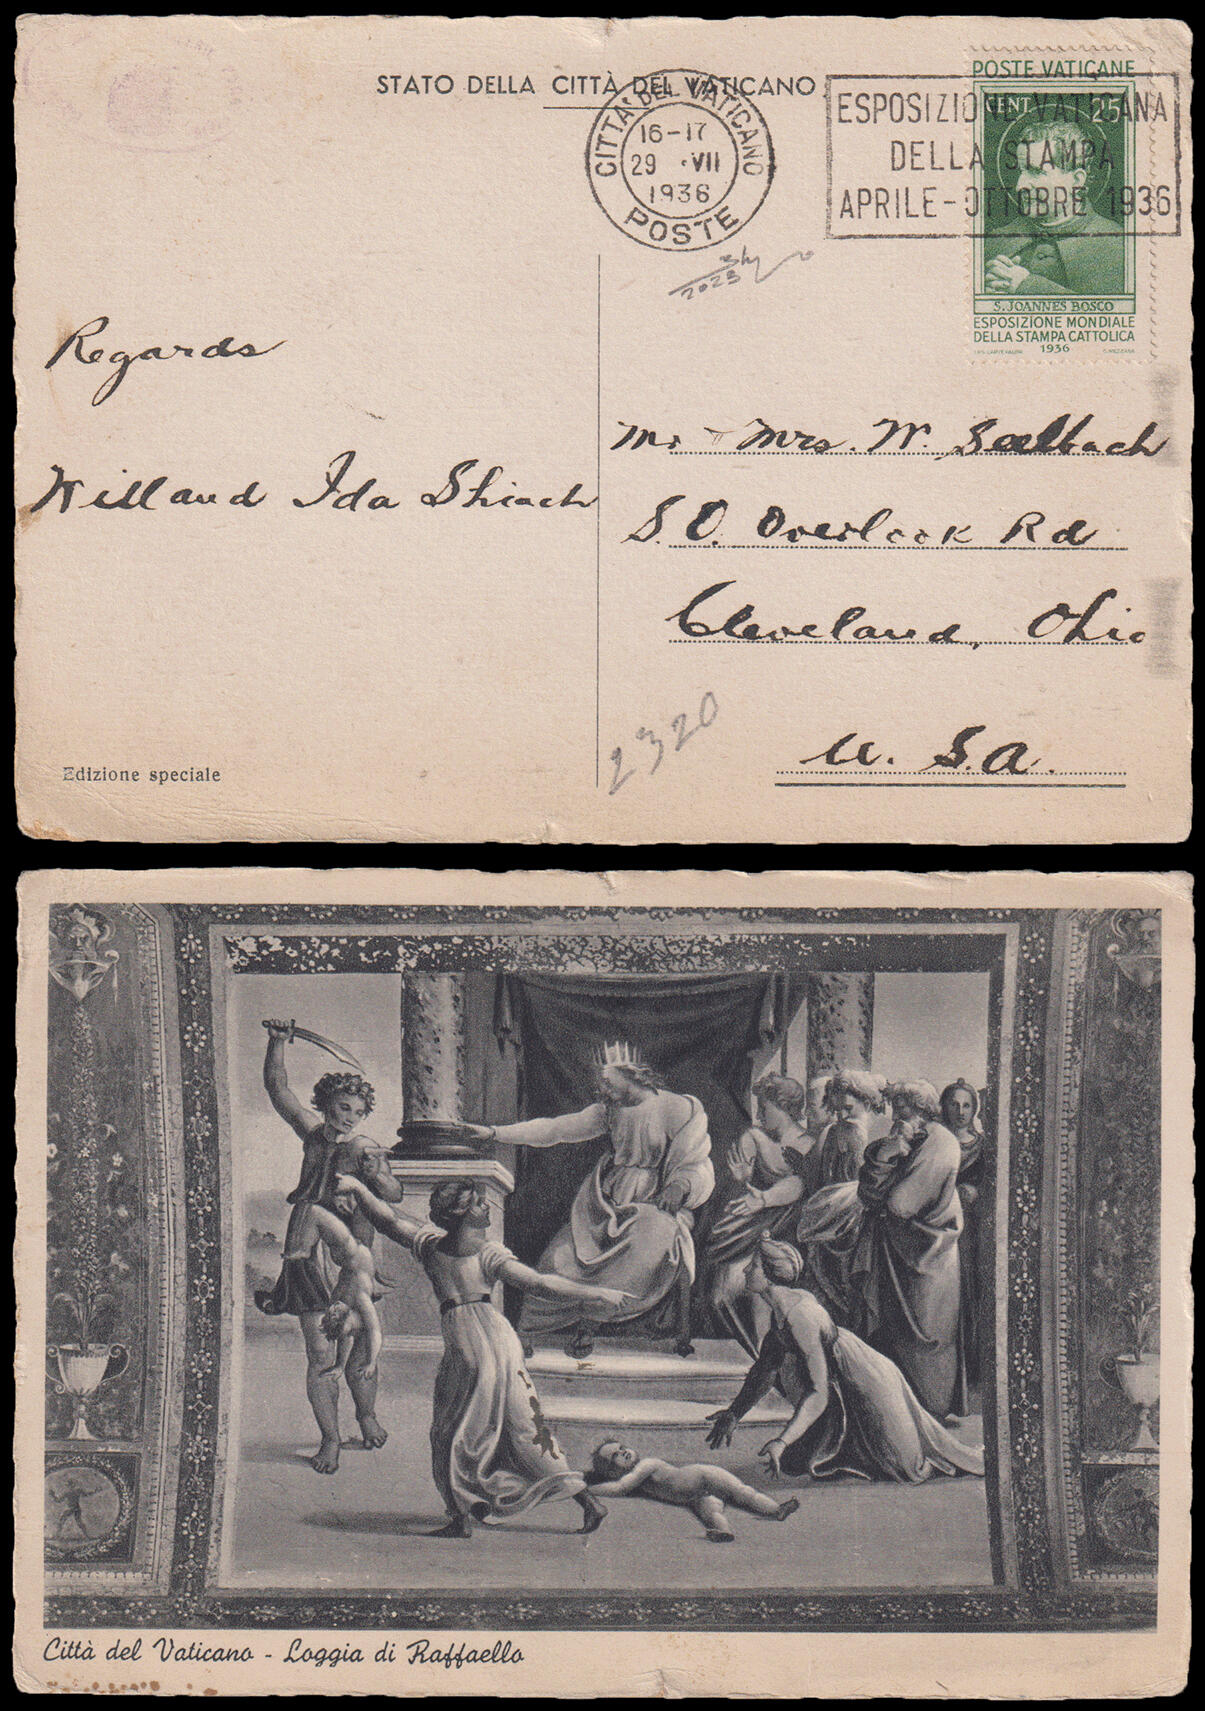 STATO DELLA CITTÀ DEL VATICANO
CITTA' DEL VATICANO
16-17
29 ·VII
1936
POSTE
ESPOSIZIONE VATICANA
DELLA STAMPA
APRILE-OTTOBRE 1936
POSTE VATICANE
CENT 25
S. JOANNES BOSCO
ESPOSIZIONE MONDIALE
DELLA STAMPA CATTOLICA
1936
2023
Regards
Will and Ida Shiach
Mr + Mrs. W. Seelbach
S.O. Overlook Rd
Cleveland, Ohio
U. S. A.
2320
Edizione speciale
Città del Vaticano - Loggia di Raffaello